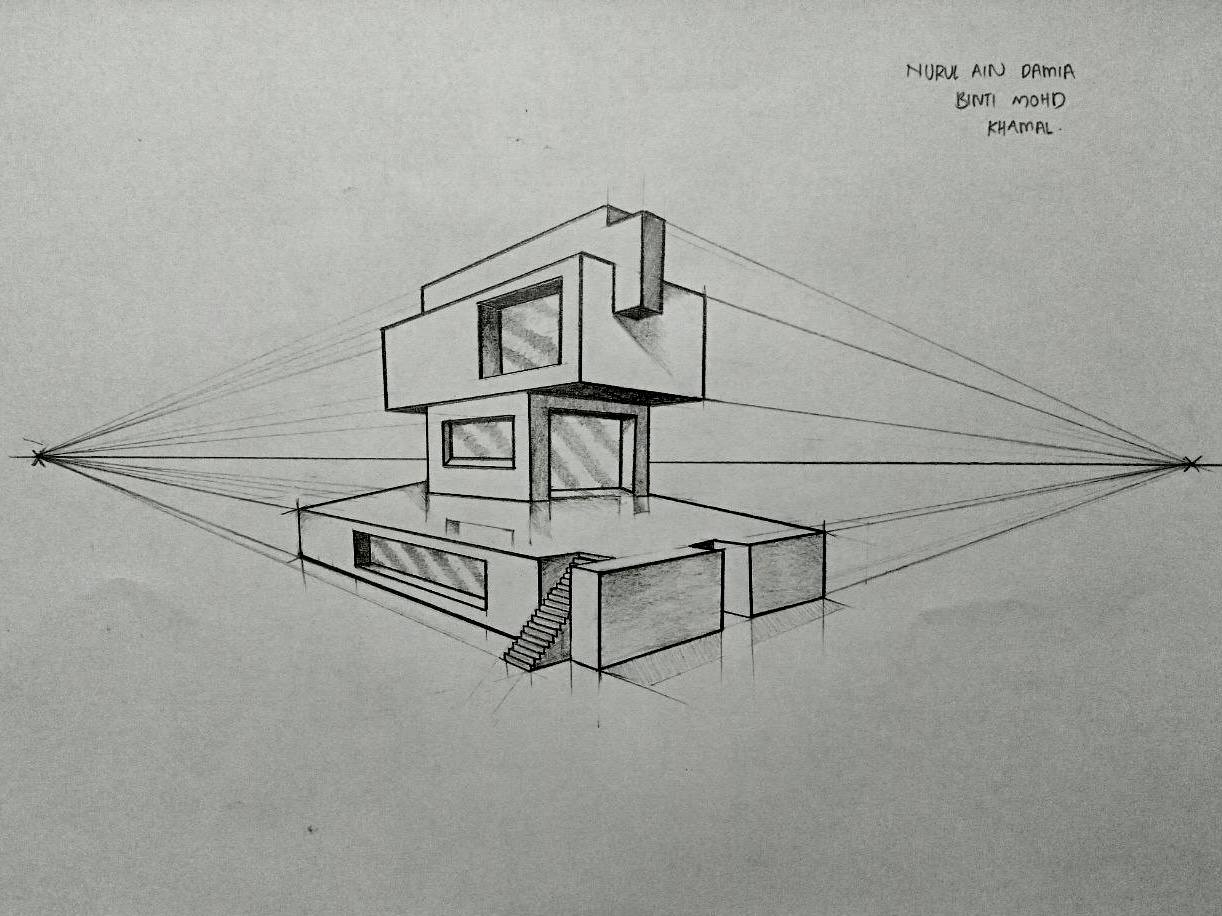 NURUL AIN DAMIA
BINTI MOHD
KHAMAL.